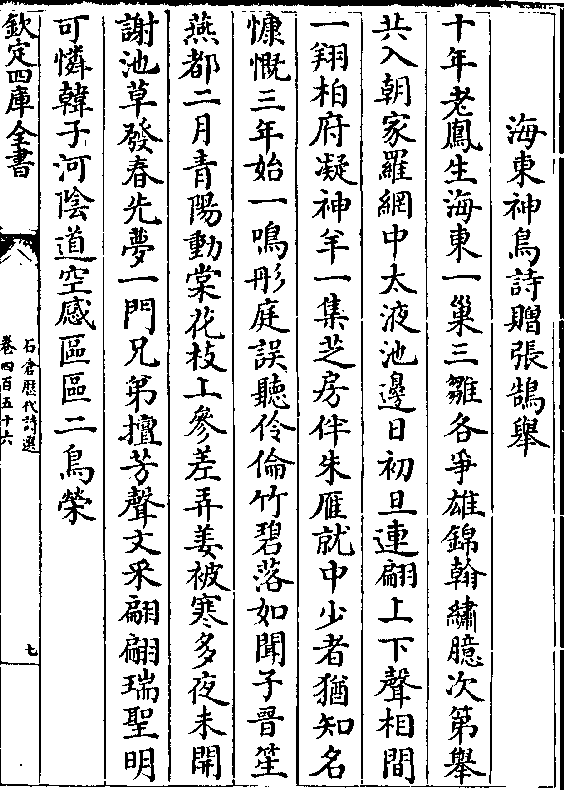 海東神鳥詩贈張鵠舉
十年老鳳生海東一巢三雛各爭雄錦翰繡臆次第舉
共入朝家羅網中太液池邊日初旦連翩上下聲相間
一翔柏府凝神羊一集芝房伴朱雁就中少者猶知名
慷慨三年始一鳴彤庭誤聽伶倫竹碧落如聞子晉笙
燕都二月青陽動棠花枝上參差弄姜被寒多夜未開
謝池草發春先夢一門兄弟擅芳聲文采翩翩瑞聖明
可憐韓子河陰道空感區區二鳥榮
欽定四庫全書
石倉歷代詩選
卷四百五十六
七